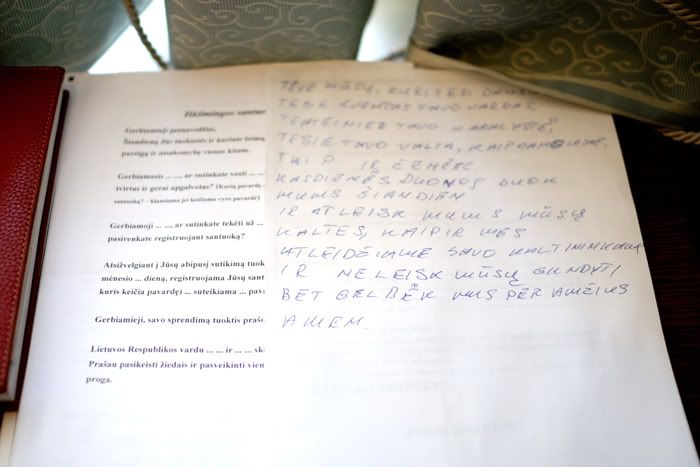 Iškilmingos santuo
Gerbiamieji jaunavedžiai,
Šiandieną Jūs tuokiatės ir kuriate šeimą
pareigą ir atsakomybę vienas kitam.
Gerbiamasis ... ..., ar sutinkate vesti ... ...
tvirtas ir gerai apgalvotas? (Kurių pavardę
santuoką? – klausiama jei keičiama vyro pavardė)
Gerbiamoji ... ..., ar sutinkate tekėti už ...
pasirenkate registruojant santuoką?
Atsižvelgiant į Jūsų abipusį sutikimą tuok
mėnesio ... dieną, registruojama Jūsų sant
kuris keičia pavardę) ... suteikiama ... pava
Gerbiamieji, savo sprendimą tuoktis prašo
Lietuvos Respublikos vardu ... ... ir ... ... sk
Prašau pasikeisti žiedais ir pasveikinti vien
proga.
TĖVE MŪSŲ, KURIS ESI DANGU
TEBŪ ŠVENTAS TAVO VARDAS,
TEATEINIE TAVO KARALYSTĖ,
TESIE TAVO VALIA, KAIP DANGUJE,
TAIP IR ŽEMĖJE.
KASDIENĖS DUONOS DUOK
MUMS ŠIANDIEN
IR ATLEISK MUMS MŪSŲ
KALTES, KAIP IR MES
ATLEIDŽIAME SAVO KALTININKAMS
IR NELEISK MŪSŲ GUNDYTI
BET GELBĖK MUS PER AMŽIUS
AMEN.